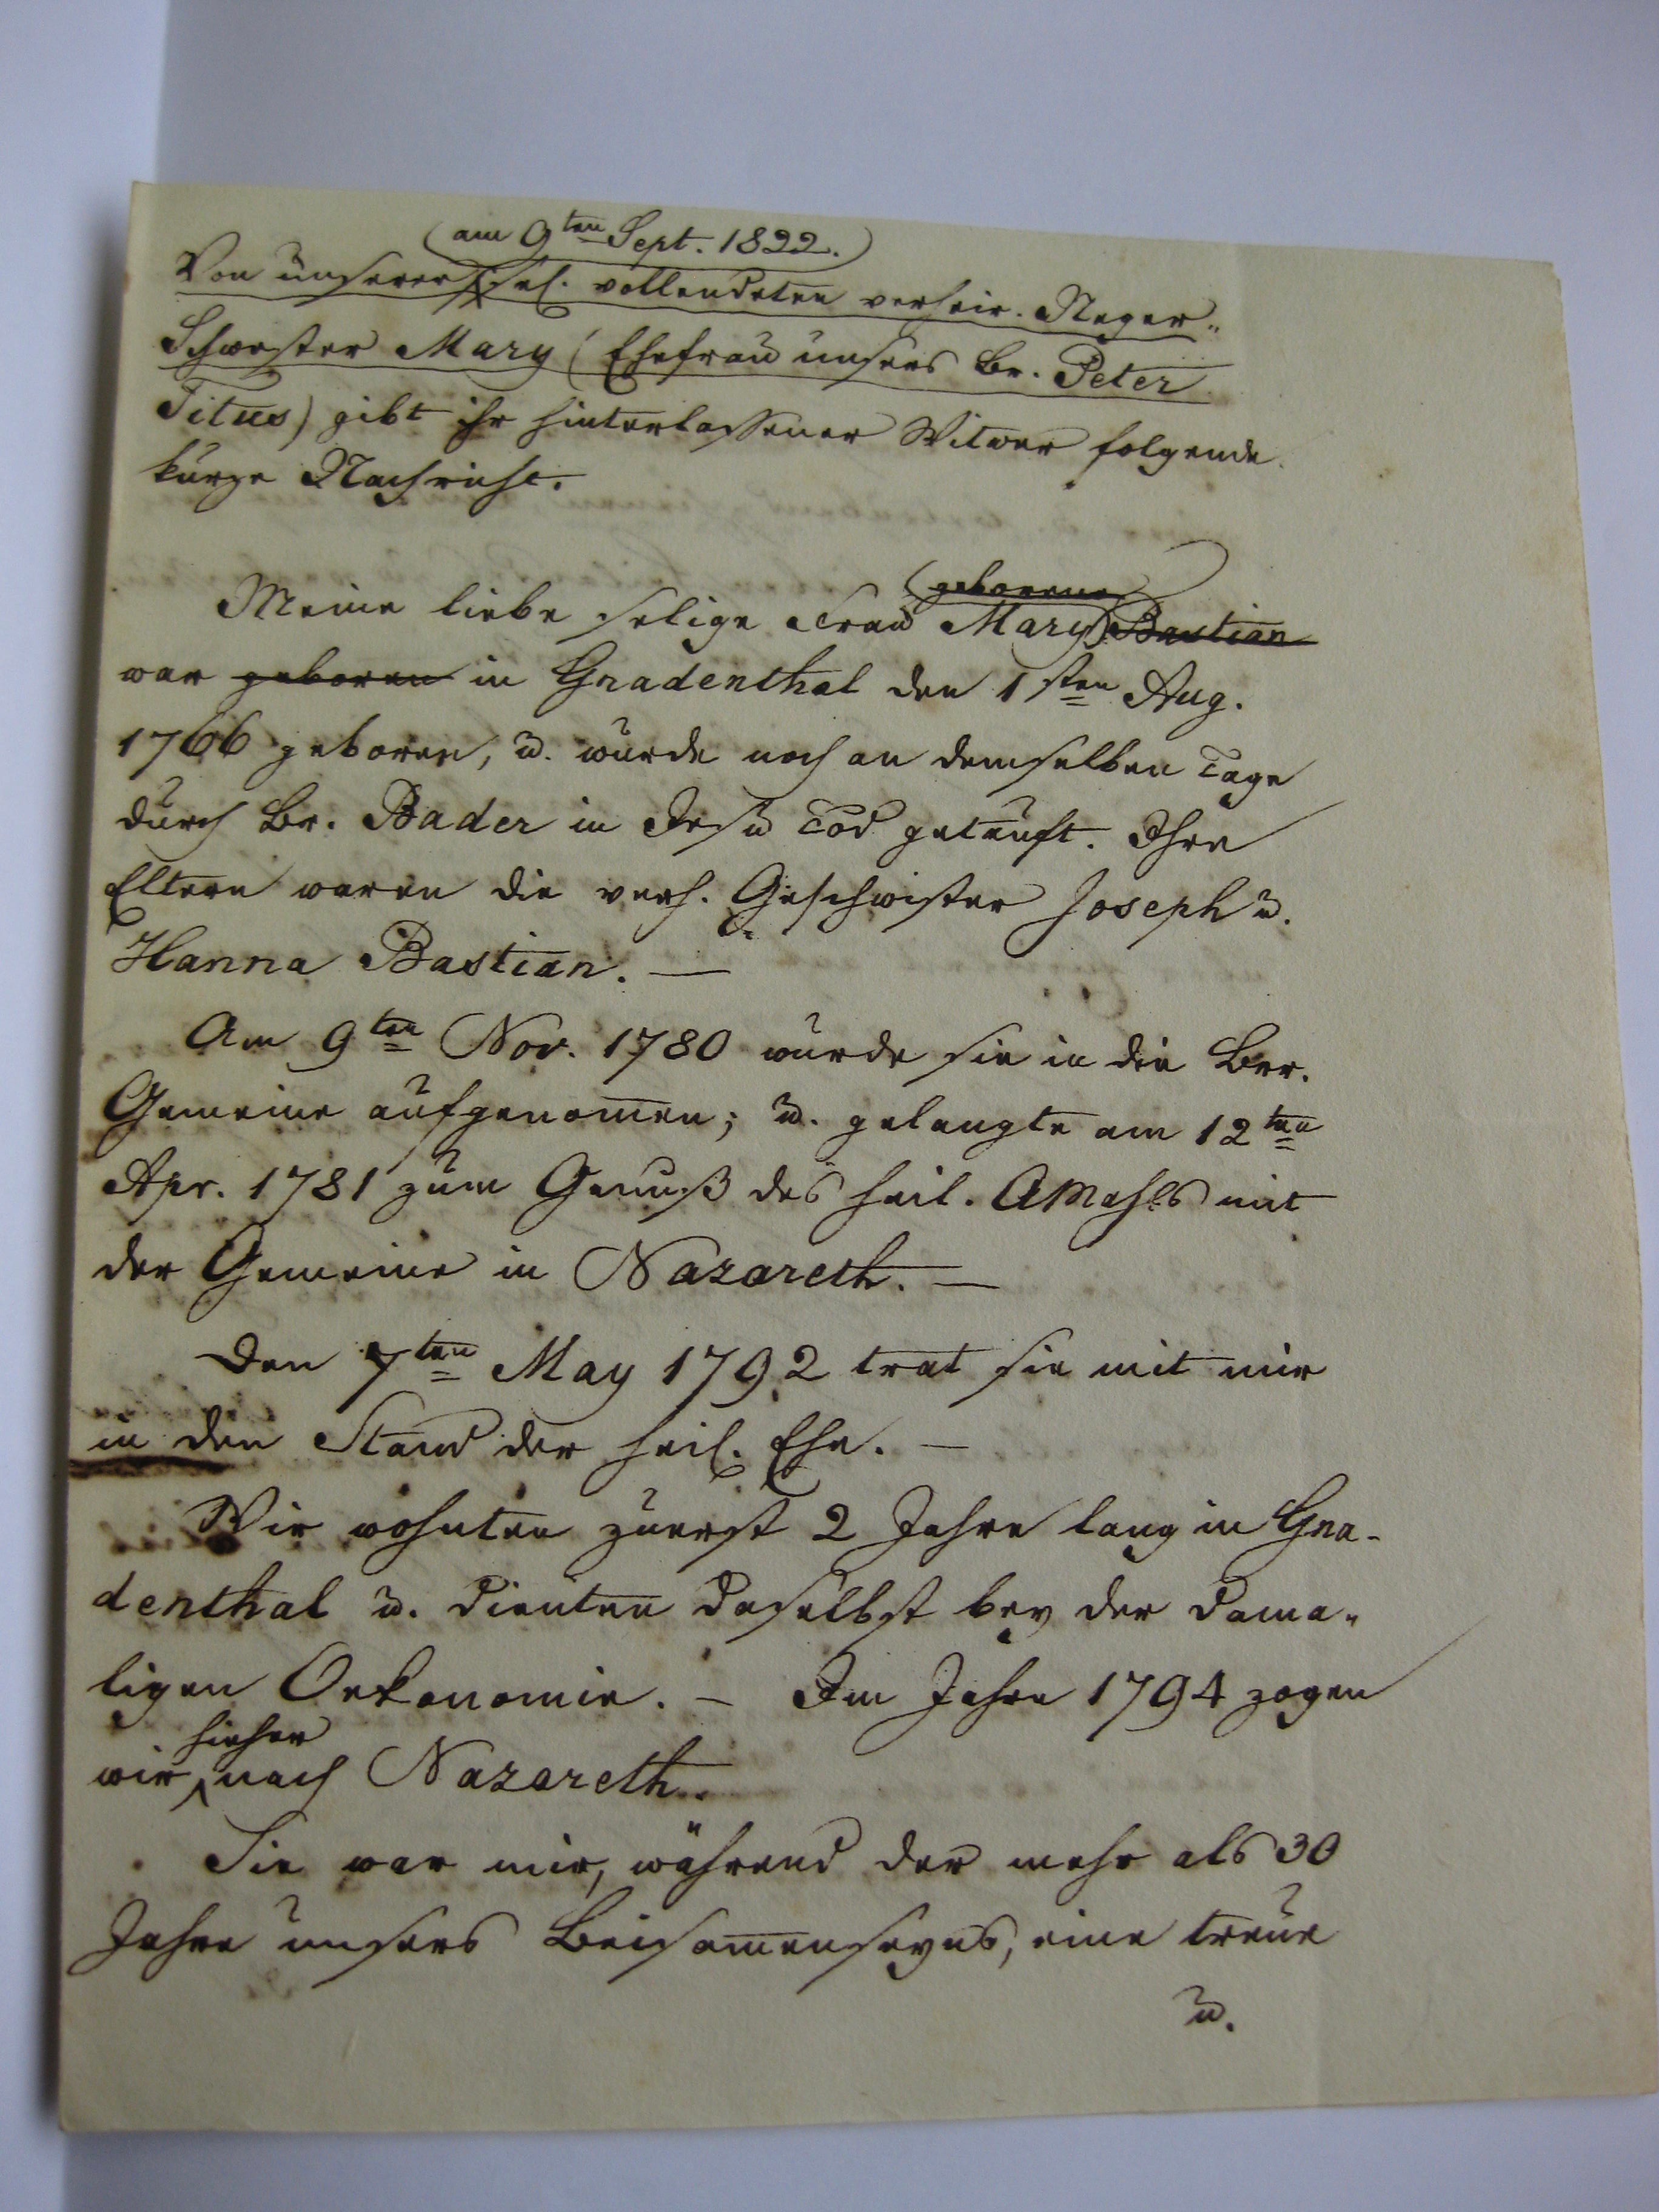 (am 9ten Sept. 1822.)
Von unserer sel. vollendeten verheir. Neger-
Schwester Mary (Ehefrau unsers Br. Peter
Titus) gibt ihr hinterlassener Witwer folgende
kurze Nachricht.
geborene
Meine liebe selige Frau Mary Bastian
war geboren in Gnadenthal den 1sten Aug.
1766 geboren, u. wurde noch an demselben Tage
durch Br. Bader in Jesu Tod getauft. Ihre
Eltern waren die verh. Geschwister Joseph u.
Hanna Bastian. —
Am 9ten Nov. 1780 wurde sie in die Br.
Gemeine aufgenom̅en; u. gelangte am 12ten
Apr. 1781 zum Genuß des heil. AMahls mit
der Gemeine in Nazareth. —
Den 7ten May 1792 trat sie mit mir
in den Stand der heil. Ehe. —
Wir wohnten zuerst 2 Jahre lang in Gna-
denthal u. dienten daselbst bey der dama-
ligen Oekonomie. — Im Jahre 1794 zogen
hieher
wir nach Nazareth.
Sie war mir, während der mehr als 30
Jahre unsers Beisam̅enseyns, eine treue
u.